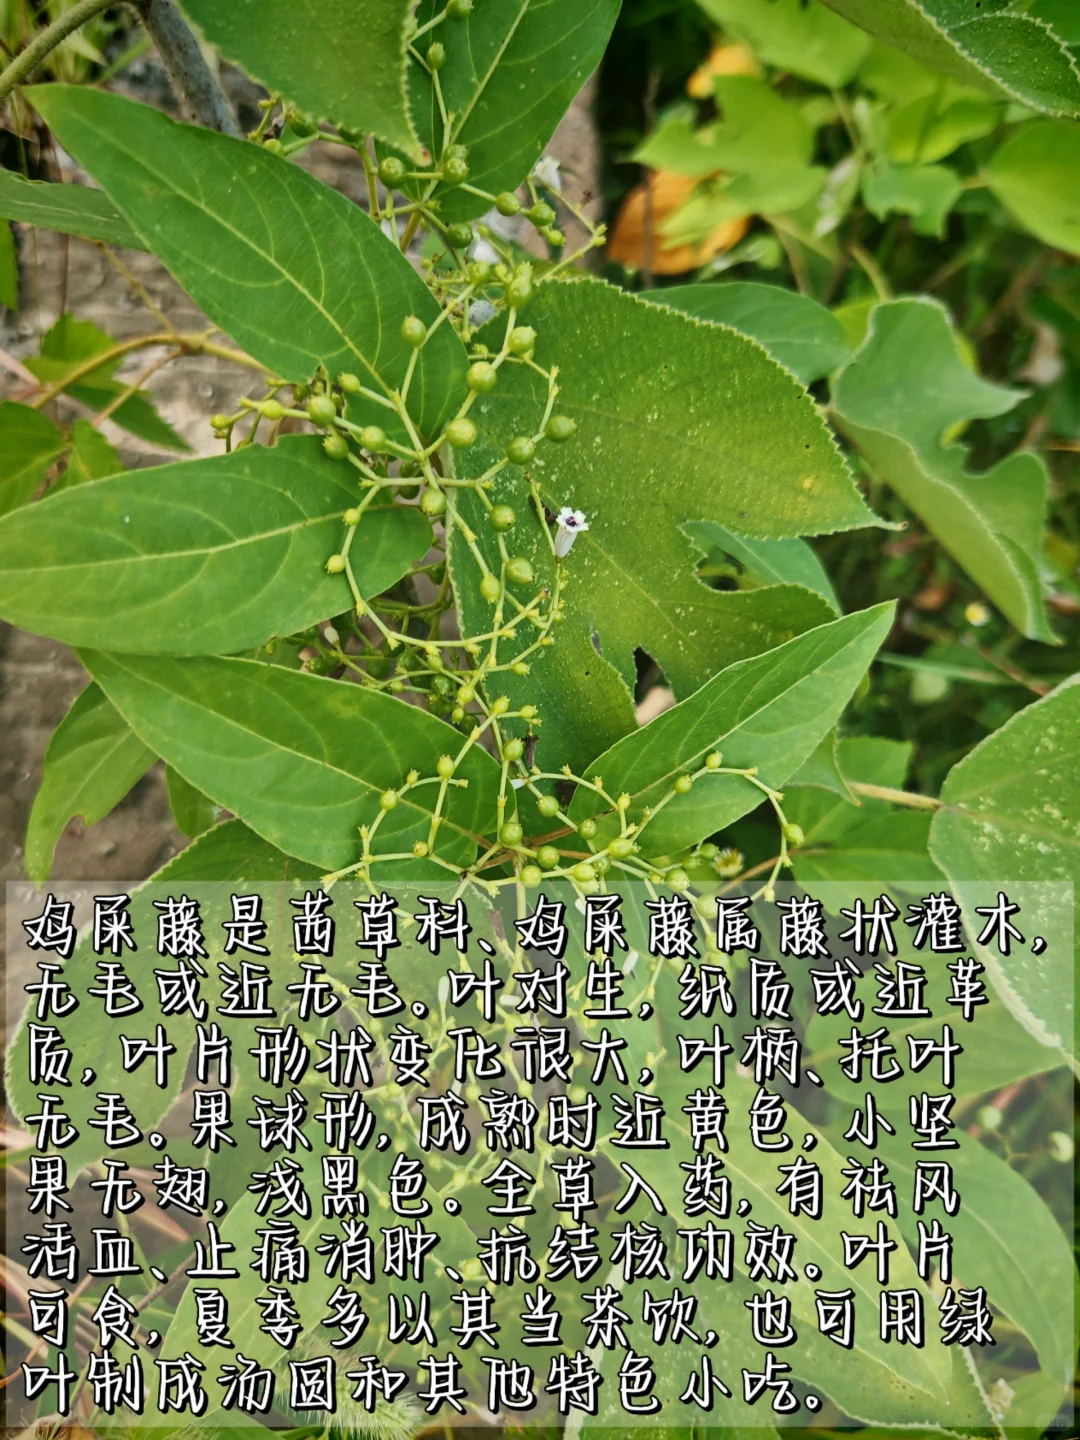 鸡屎藤是茜草科、鸡屎藤属藤状灌木,
无毛或近无毛。叶对生,纸质或近革
质,叶片形状变化很大,叶柄、托叶
无毛。果球形,成熟时近黄色,小坚
果无翅,浅黑色。全草入药,有祛风
活血、止痛消肿、抗结核功效。叶片
可食,夏季多以其当茶饮,也可用绿
叶制成汤圆和其他特色小吃。